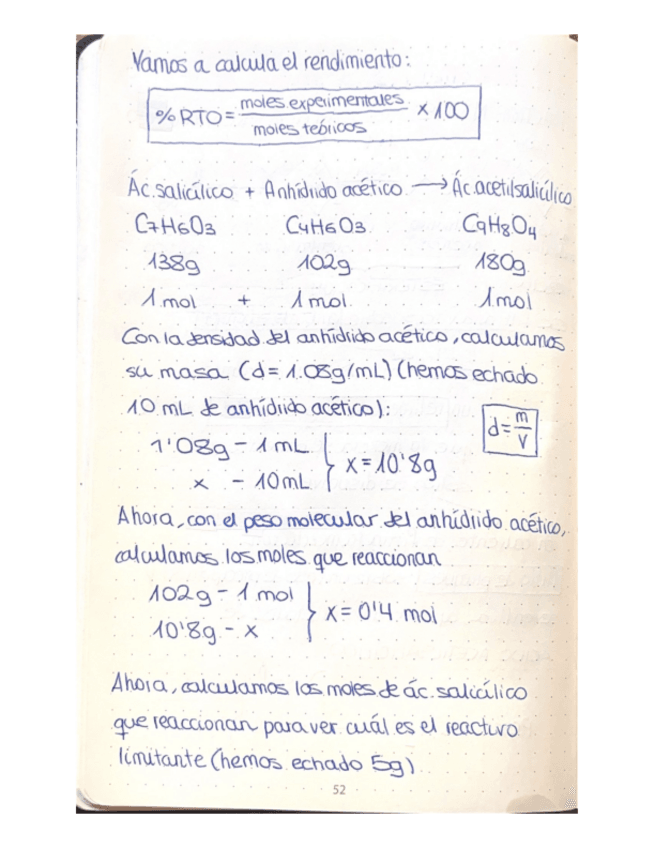 Vamos a calcula el rendimiento:
% RTO = moles experimentales / moles teóricos × 100
Ác. salicílico + Anhídrido acético → Ác. acetilsalicílico
C7H6O3 C4H6O3 C9H8O4
138g 102g 180g
1 mol + 1 mol 1 mol
Con la densidad del anhídrido acético, calculamos
su masa (d = 1.08g/mL) (hemos echado
10 mL de anhídrido acético):
d = m/V
1'08g - 1 mL
x - 10 mL } x = 10'8g
Ahora, con el peso molecular del anhídrido acético,
calculamos los moles que reaccionan
102g - 1 mol
10'8g - x } x = 0'4 mol
Ahora, calculamos los moles de ác. salicílico
que reaccionan para ver cuál es el reactivo
limitante (hemos echado 5g)
52